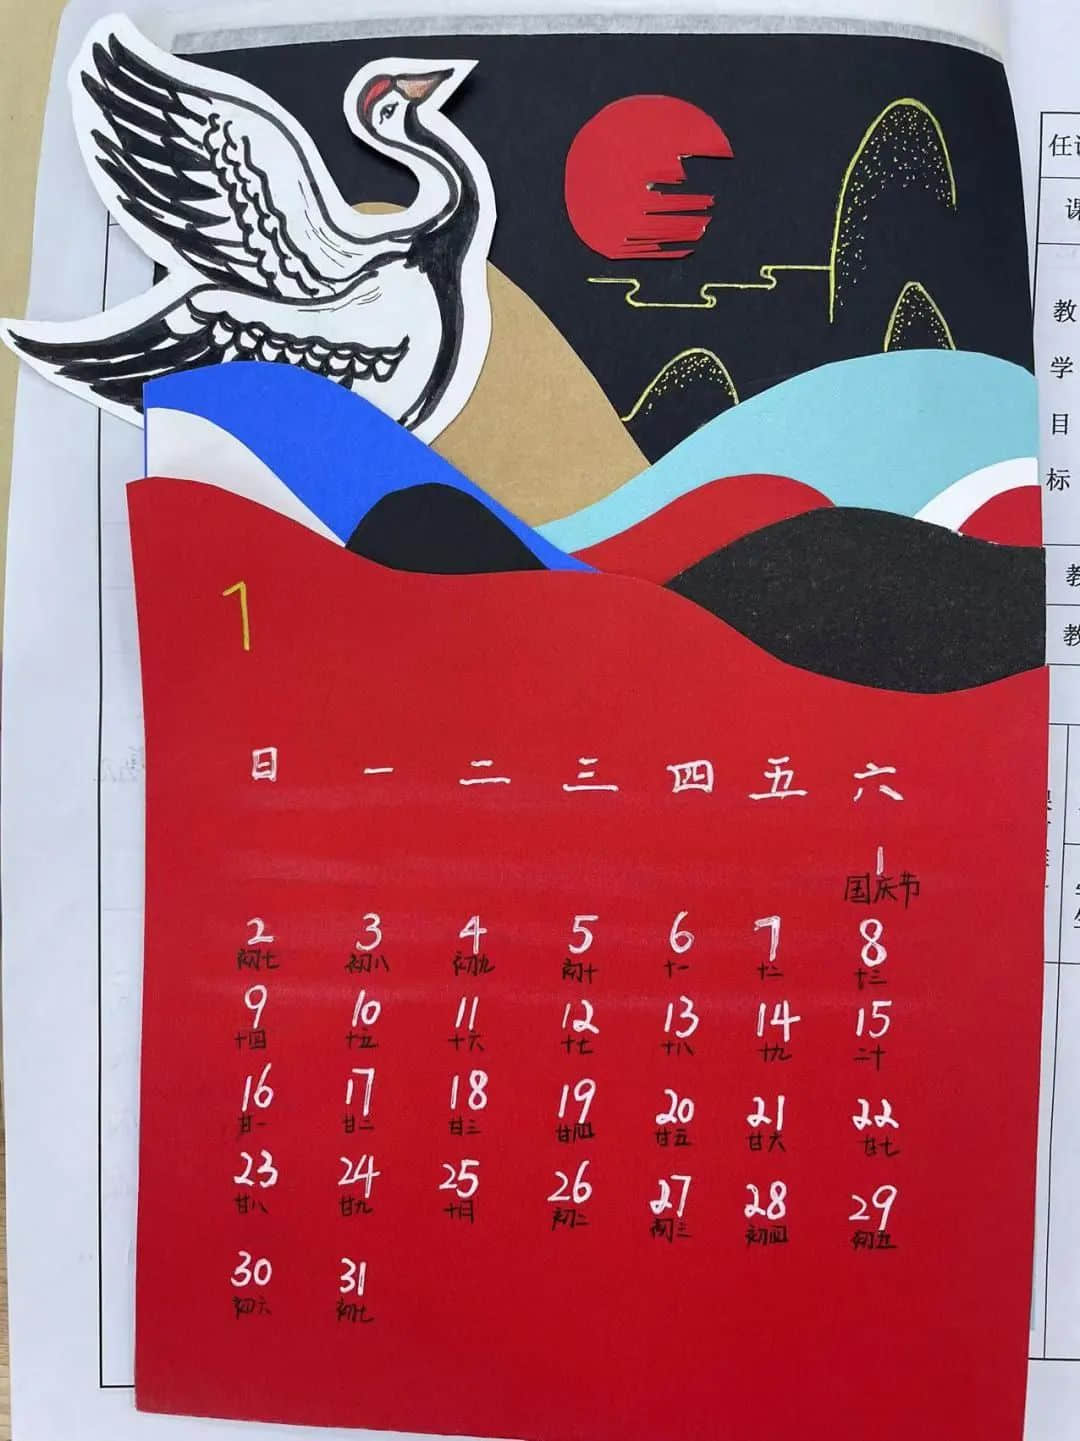 1
日 一 二 三 四 五 六
1
国庆节
2 3 4 5 6 7 8
初七 初八 初九 初十 十一 十二 十三
9 10 11 12 13 14 15
十四 十五 十六 十七 十八 十九 二十
16 17 18 19 20 21 22
廿一 廿二 廿三 廿四 廿五 廿六 廿七
23 24 25 26 27 28 29
廿八 廿九 十月 初二 初三 初四 初五
30 31
初六 初七
教
学
目
标
教
教